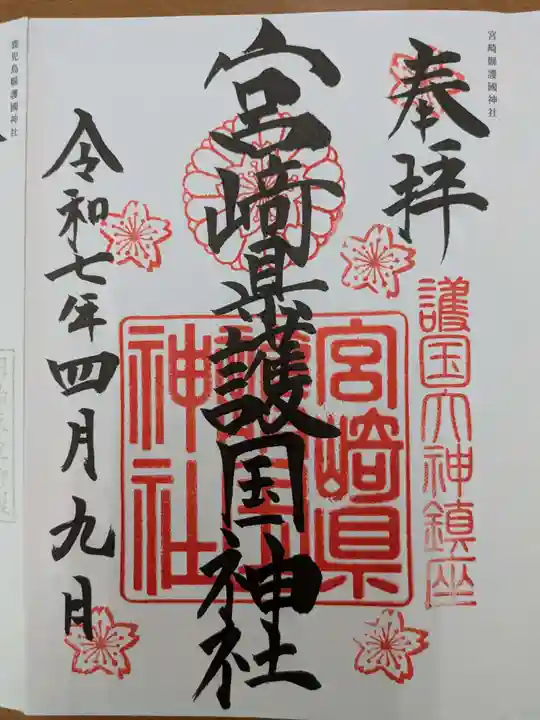 宮崎縣護國神社
奉拝
護国大神鎮座
宮﨑県護国神社
宮崎県
護国
神社
令和七年四月九日
鹿児島縣護國神社